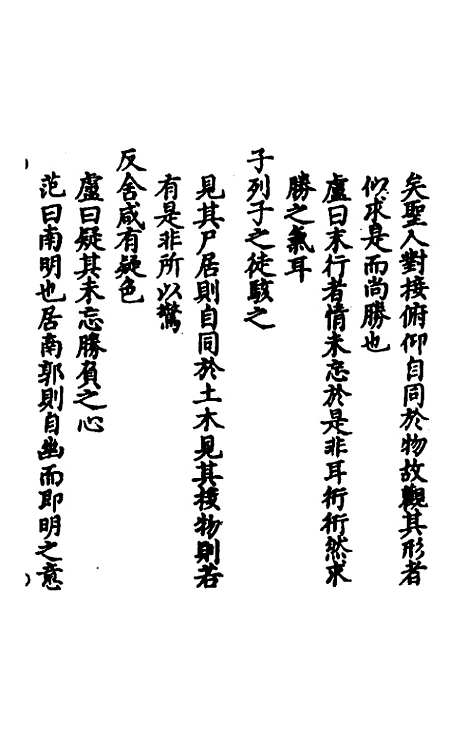 矣聖人對接俯仰自同於物故觀其形者
似求是而尚勝也
盧曰末行者情未忘於是非耳衎衎然求
勝之氣耳
子列子之徒駭之
見其尸居則自同於土木見其接物則若
有是非所以驚
反舍咸有疑色
盧曰疑其未忘勝負之心
范曰南明也居南郭則自幽而即明之意